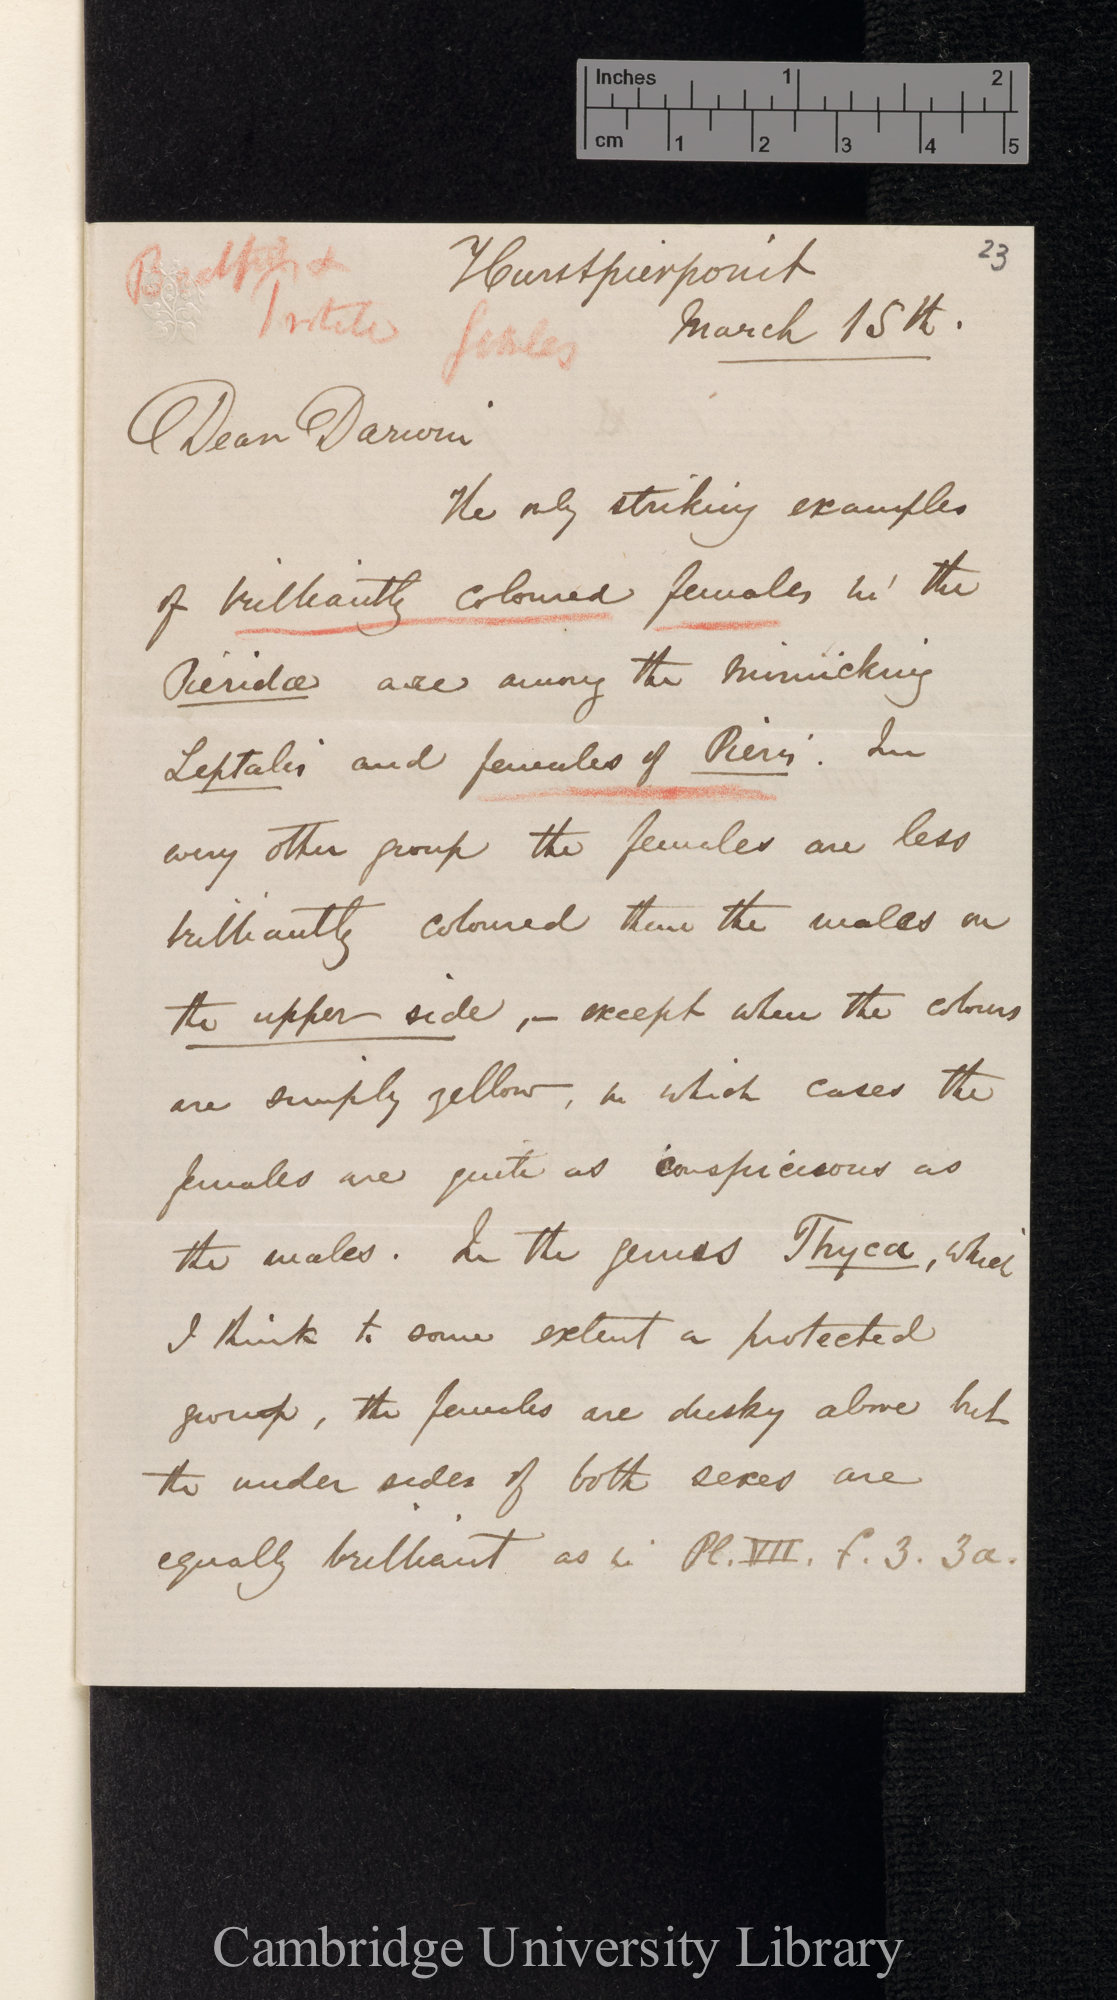 Inches 1 2
cm 1 2 3 4 5
23
Hurstpierpoint
March 15th.
females
Dear Darwin
The only striking examples
of brilliantly coloured females in the
Pieridæ are among the mimicking
Leptalis and females of Pieris. In
every other group the females are less
brilliantly coloured than the males on
the upper side, — except when the colours
are simply yellow, in which cases the
females are quite as conspicuous as
the males. In the genus Thyca, which
I think to some extent a protected
group, the females are dusky above but
the under sides of both sexes are
equally brilliant as in Pl. VII. f. 3. 3a.
Cambridge University Library